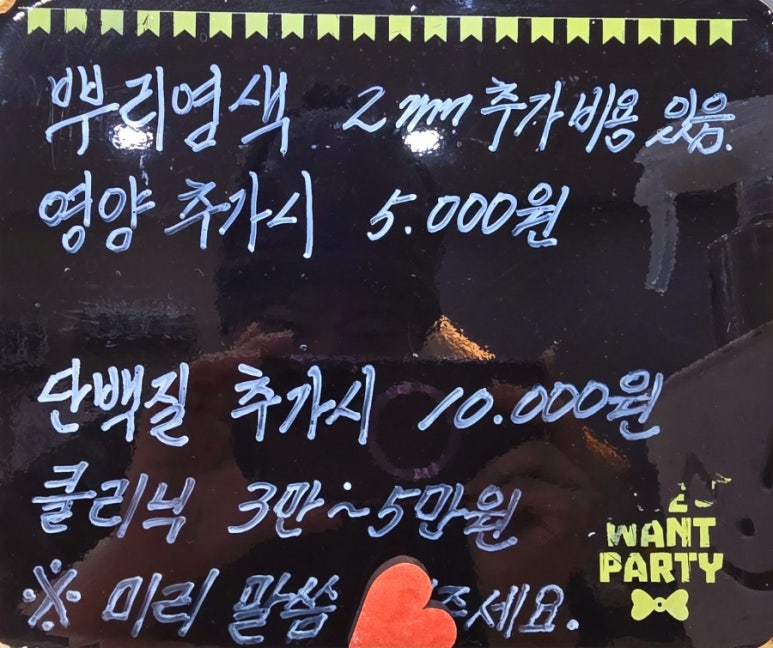 뿌리염색 2mm 추가비용 있음.
영양 추가시 5.000원
단백질 추가시 10.000원
클리닉 3만~5만원
※ 미리 말씀 주세요.
WANT
PARTY